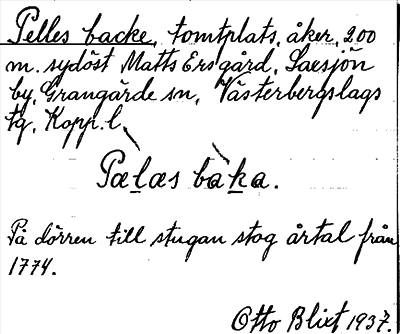 Pelles backe, tomtplats, åker, 200
m. sydöst Matts Ers gård, Saxsjön
by, Grangärde sn, Västerbergslags
tg, Kopp. l.
Pælæs baka.
På dörren till stugan stog årtal från
1774.
Otto Blixt 1937.